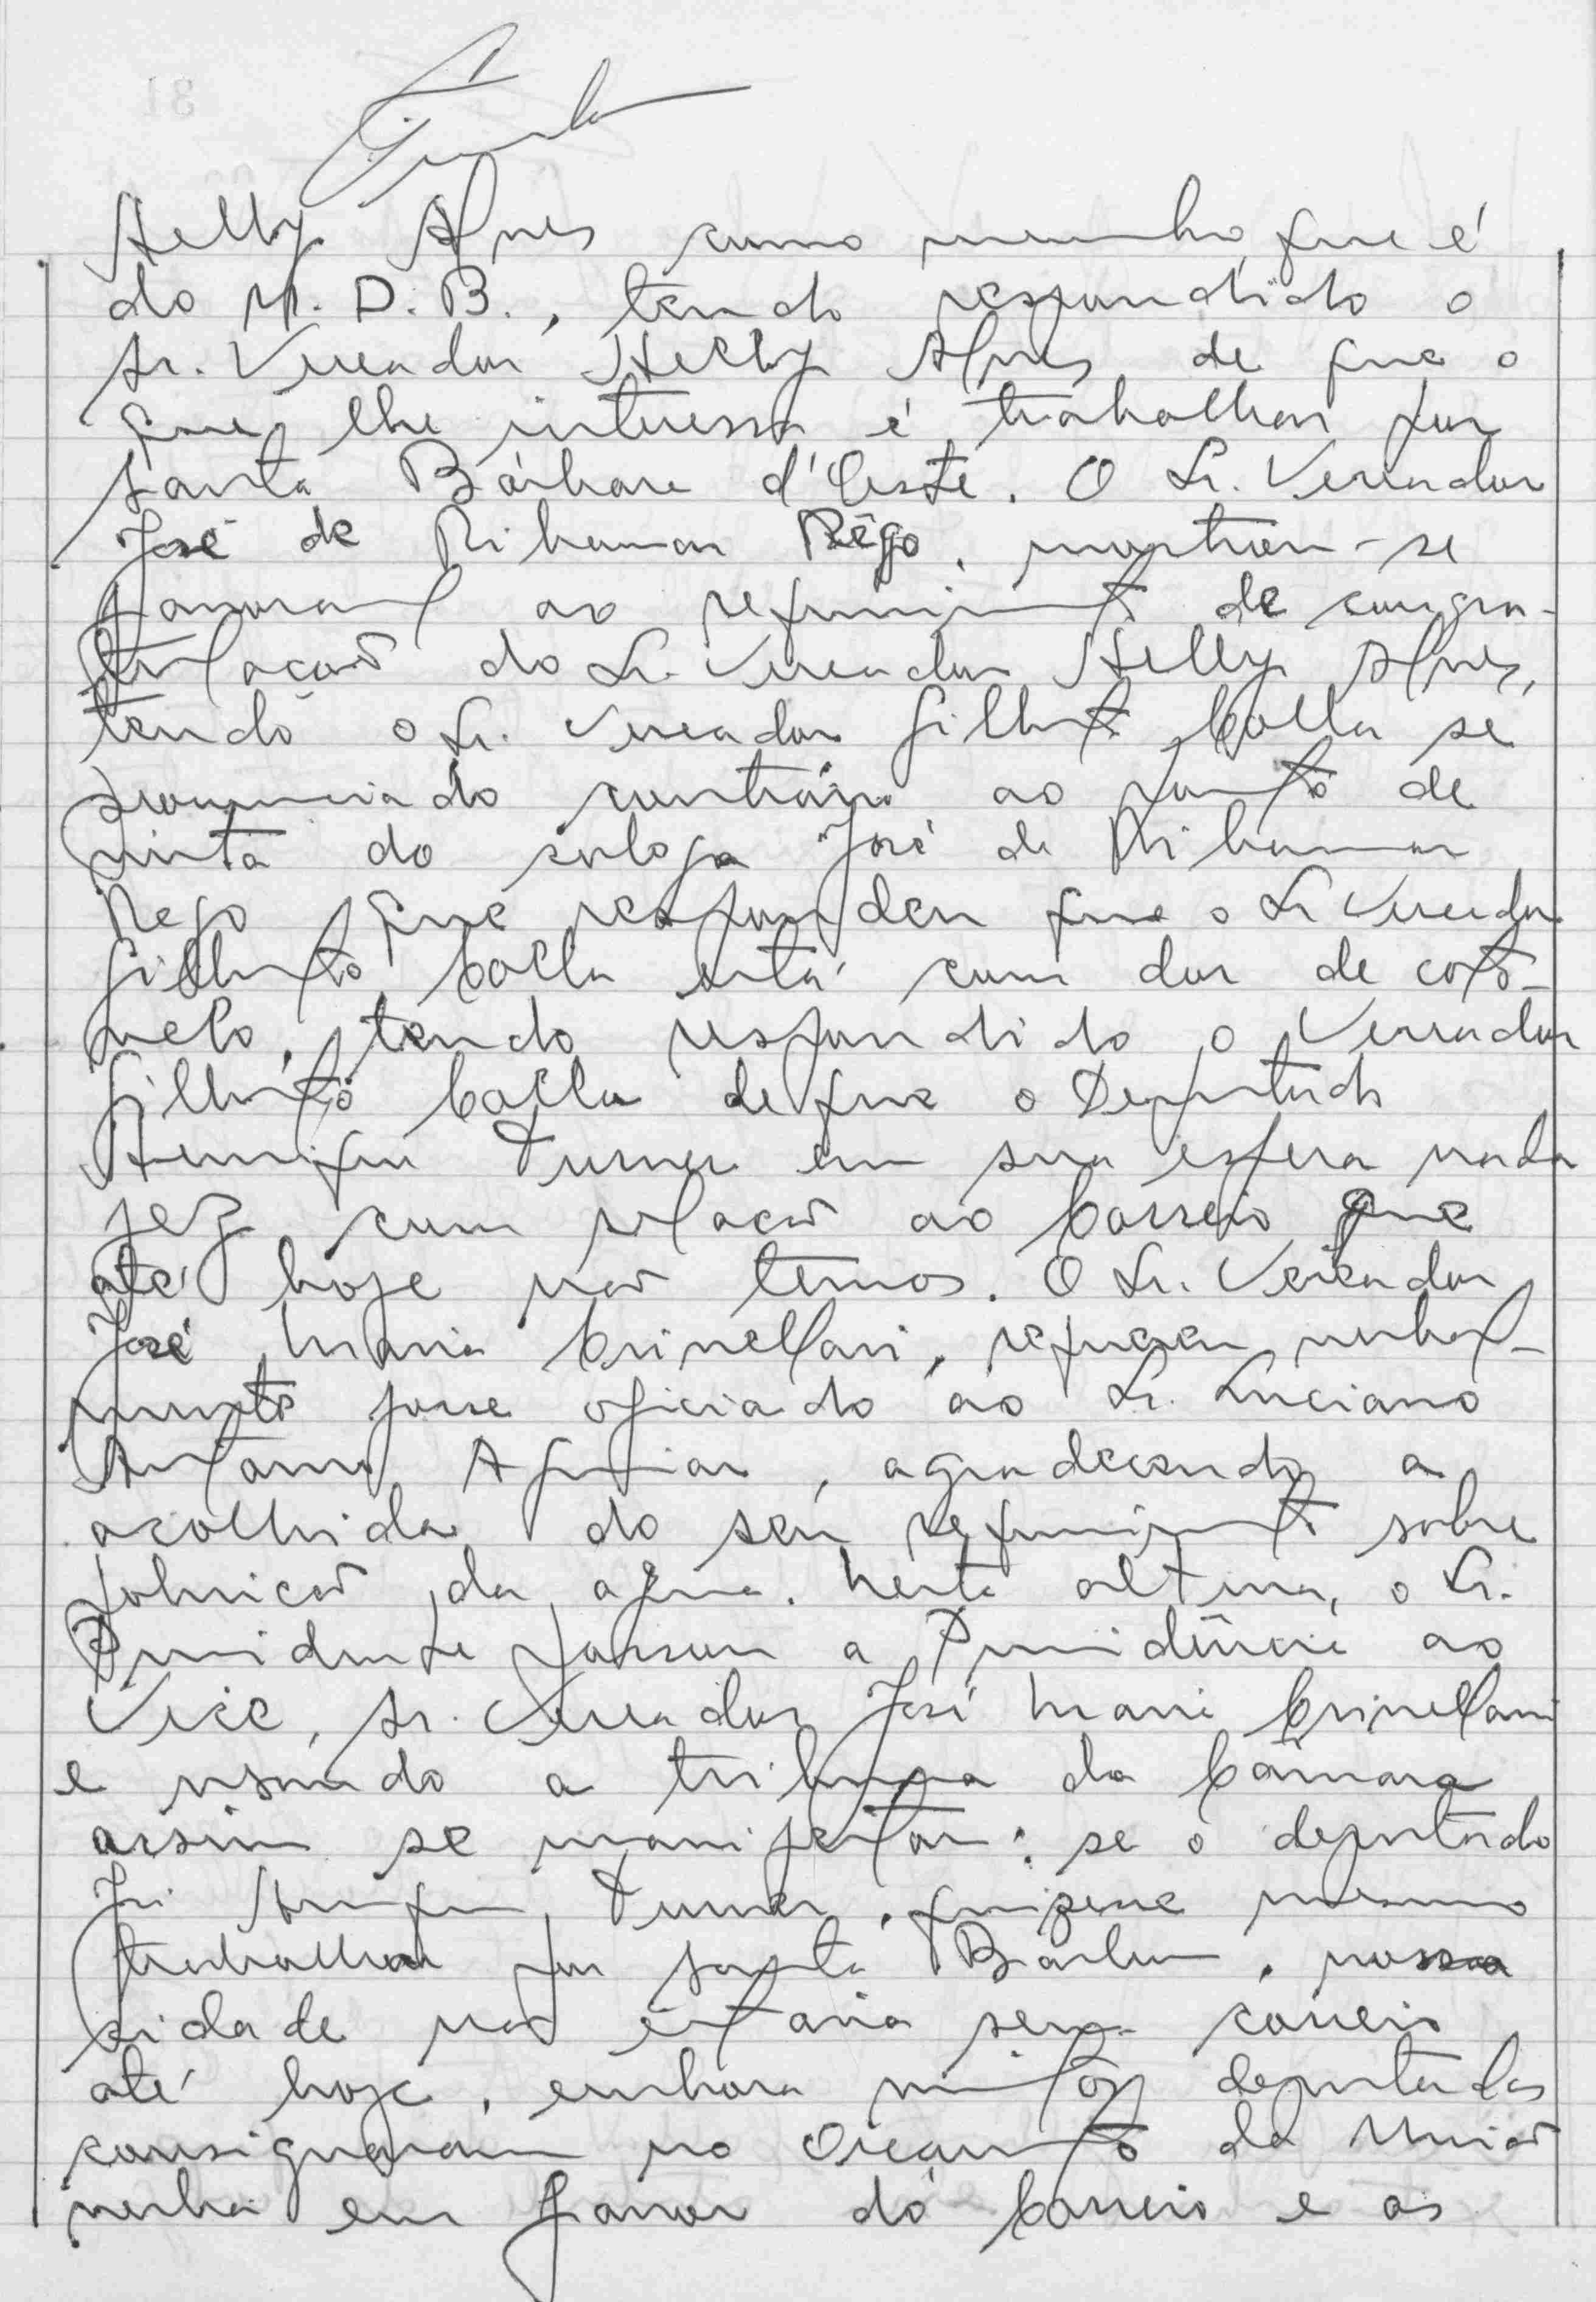 Helly Alves como membro, que é
do M.D.B., tendo respondido o
Sr. Vereador Helly Alves de que o
que lhe interessa é trabalhar por
Santa Bárbara d'Oeste. O Sr. Vereador
José de Ribamar Rêgo, mostrou-se
favoravel ao requerimento de congra-
tulação do Sr. Vereador Helly Alves,
tendo o Sr. Vereador Gilberto Colla se
pronunciado contrário ao ponto de
vista do colega José de Ribamar
Rego que respondeu que o Sr Vereador
Gilberto Colla está com dor de coto-
velo, tendo respondido o Vereador
Gilberto Colla de que o Deputado
Henrique Turner em sua esfera nada
fez com relação ao Correio que
até hoje não temos. O Sr. Vereador
José Maria Crivellari, requereu verbal-
mente fosse oficiado ao Sr. Luciano
Antonio Aguiar, agradecendo a
acolhida do seu requerimento sobre
poluição da agua. Nesta altura, o Sr.
Presidente passou a Presidência ao
Vice, Sr. Vereador José Maria Crivellari
e usando a tribuna da Câmara
assim se manifestou: se o deputado
Turner, quizesse mesmo
trabalhar por Santa Bárbara, nossa
cidade não estaria sem correio
até hoje, embora muitos deputados
consignaram no Orçamento da União
verba em favor do Correio e os